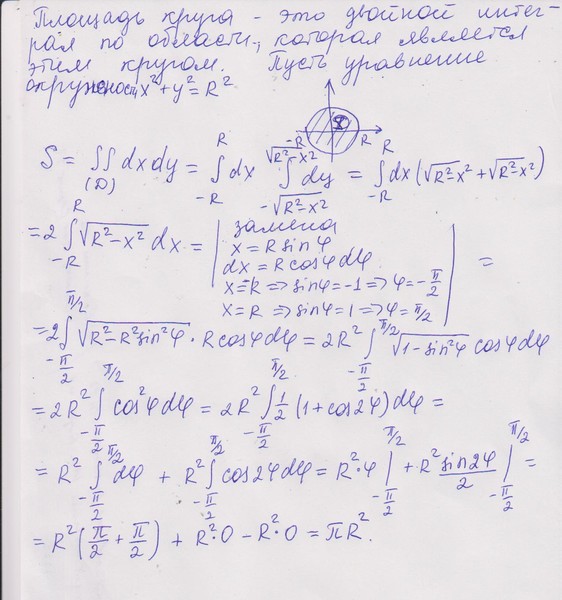 Площадь круга - это двойной интег-
рал по области, которая является
этим кругом. Пусть уравнение
окружности x² + y² = R²
-R R R
S = ∬_(D) dxdy = ∫_{-R}^{R} dx ∫_{-√(R²-x²)}^{√(R²-x²)} dy = ∫_{-R}^{R} dx (√(R²-x²) + √(R²-x²))
= 2 ∫_{-R}^{R} √(R²-x²) dx = | замена
x = R sinφ
dx = R cosφ dφ
x=-R ⇒ sinφ = -1 ⇒ φ = -π/2
x = R ⇒ sinφ = 1 ⇒ φ = π/2 | =
= 2 ∫_{-π/2}^{π/2} √(R²-R²sin²φ) · R cosφ dφ = 2R² ∫_{-π/2}^{π/2} √(1-sin²φ) cosφ dφ
= 2R² ∫_{-π/2}^{π/2} cos²φ dφ = 2R² ∫_{-π/2}^{π/2} 1/2 (1+cos2φ) dφ =
= R² ∫_{-π/2}^{π/2} dφ + R² ∫_{-π/2}^{π/2} cos2φ dφ = R²·φ |_{-π/2}^{π/2} + R² sin2φ/2 |_{-π/2}^{π/2} =
= R² (π/2 + π/2) + R²·0 - R²·0 = πR².